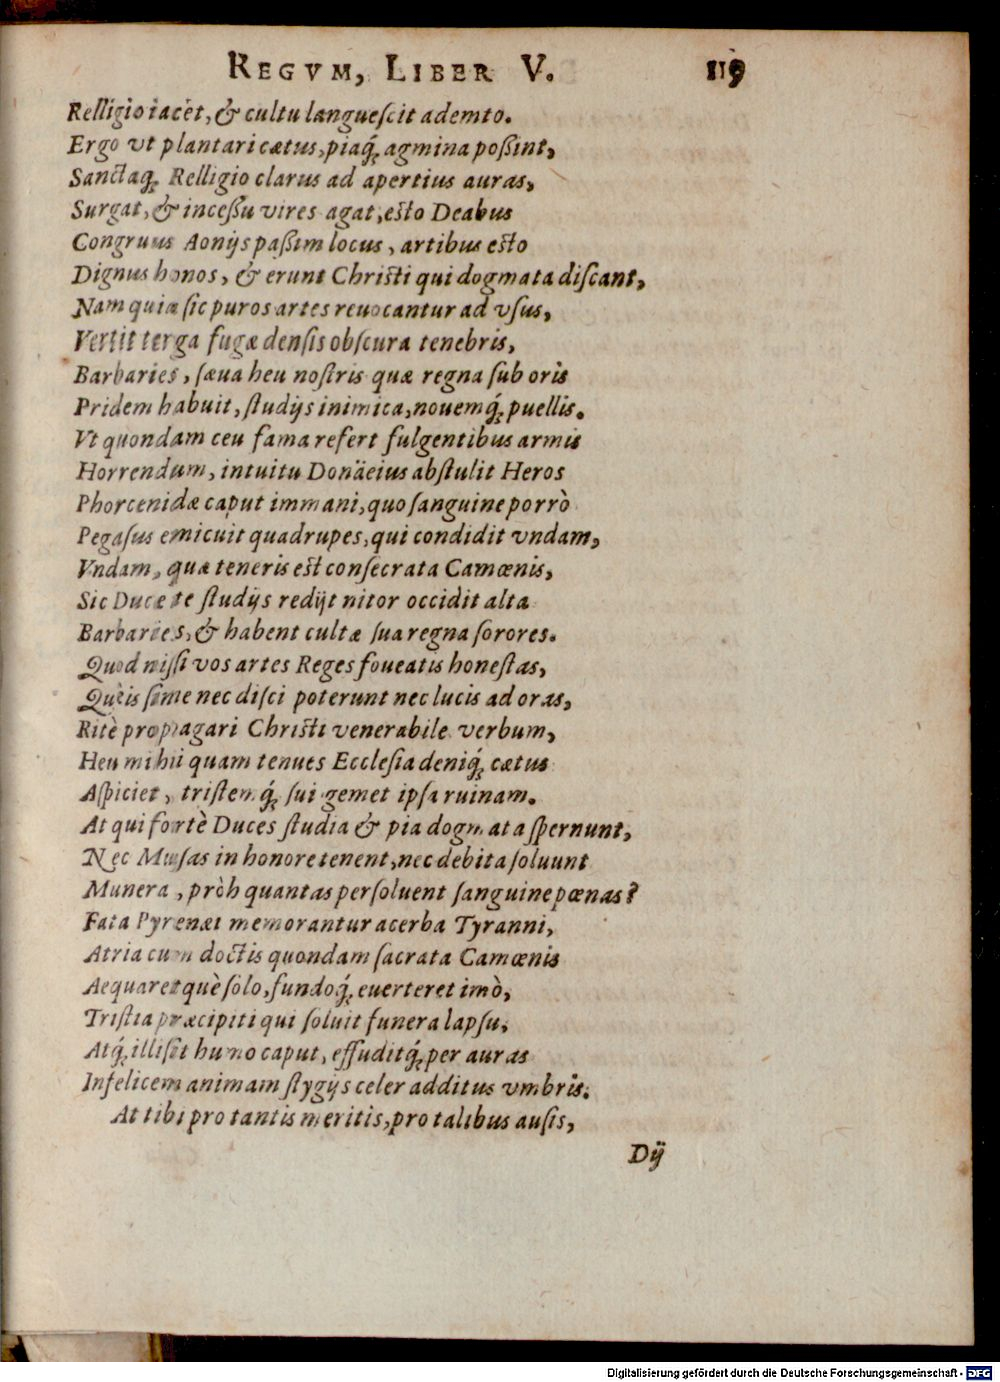 REGVM, LIBER V. 119
Relligio iacet, & cultu languescit ademto.
Ergo vt plantari cætus, piaq́; agmina poßint,
Sanctaq; Relligio clarus ad apertius auras,
Surgat, & inceßu vires agat, esto Deabus
Congruus Aonijs paßim locus, artibus esto
Dignus honos, & erunt Christi qui dogmata discant,
Nam quia sic puros artes reuocantur ad vsus,
Vertit terga fugæ densis obscura tenebris,
Barbaries, sæua heu nostris quæ regna sub oris
Pridem habuit, studijs inimica, nouemq́; puellis.
Vt quondam ceu fama refert fulgentibus armis
Horrendum, intuitu Donäeius abstulit Heros
Phorcenidæ caput immani, quo sanguine porrò
Pegasus emicuit quadrupes, qui condidit vndam,
Vndam, quæ teneris est consecrata Camœnis,
Sic Duce te studijs redijt nitor occidit alta
Barbaries, & habent cultæ sua regna sorores.
Quod nissi vos artes Reges foueatis honestas,
Quèis sine nec disci poterunt nec lucis ad oras,
Ritè propagari Christi venerabile verbum,
Heu mihii quam tenues Ecclesia deniq́; cætus
Aspiciet, tristemq́; sui gemet ipsa ruinam.
At qui fortè Duces studia & pia dogmata spernunt,
Nec Musas in honore tenent, nec debita soluunt
Munera, pròh quantas persoluent sanguine pœnas?
Fata Pyrenæi memorantur acerba Tyranni,
Atria cum doctis quondam sacrata Camœnis
Aequaretquè solo, fundoq́; euerteret imò,
Tristia præcipiti qui soluit funera lapsu.
Atq́; illiset humo caput, effuditq́; per auras
Infelicem animam stygijs celer additus vmbris.
At tibi pro tantis meritis, pro talibus ausis,
Dÿ
Digitalisierung gefördert durch die Deutsche Forschungsgemeinschaft - DFG